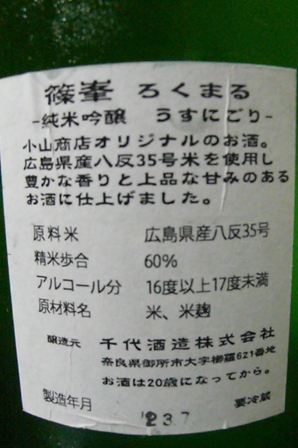 篠峯 ろくまる
-純米吟醸 うすにごり-
小山商店オリジナルのお酒。
広島県産八反35号米を使用し
豊かな香りと上品な甘みのある
お酒に仕上げました。
原料米 広島県産八反35号
精米歩合 60%
アルコール分 16度以上17度未満
原材料名 米、米麹
醸造元 千代酒造株式会社
奈良県御所市大字櫛羅621番地
お酒は20歳になってから。
製造年月 237 要冷蔵